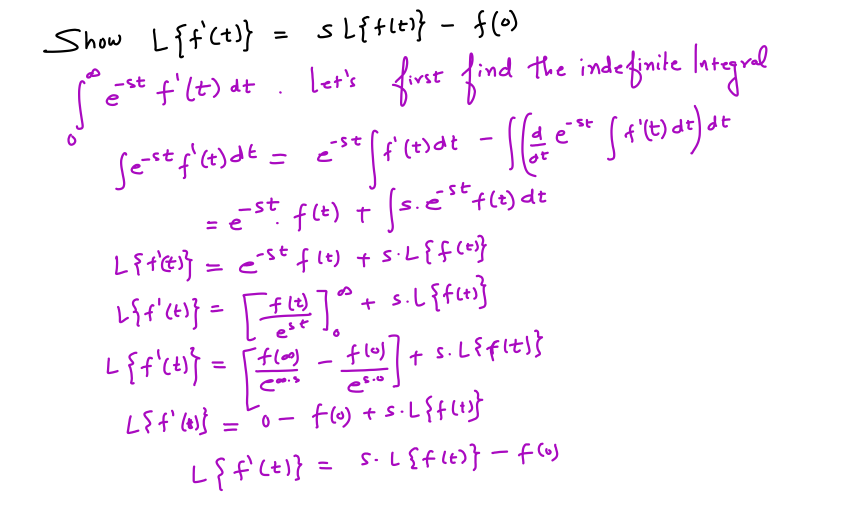 Show L{f'(t)} = s L{f(t)} - f(0)
∫₀^∞ e^-st f'(t) dt . Let's first find the indefinite Integral
∫e^-st f'(t) dt = e^-st ∫f'(t) dt - ∫(d/dt e^-st ∫f'(t) dt) dt
= e^-st . f(t) + ∫s. e^-st f(t) dt
L{f'(t)} = e^-st f(t) + s. L{f(t)}
L{f'(t)} = [f(t)/e^st]₀^∞ + s. L{f(t)}
L{f'(t)} = [f(∞)/e^∞.s - f(0)/e^s.0] + s. L{f(t)}
L{f'(t)} = 0 - f(0) + s. L{f(t)}
L{f'(t)} = s. L{f(t)} - f(0)